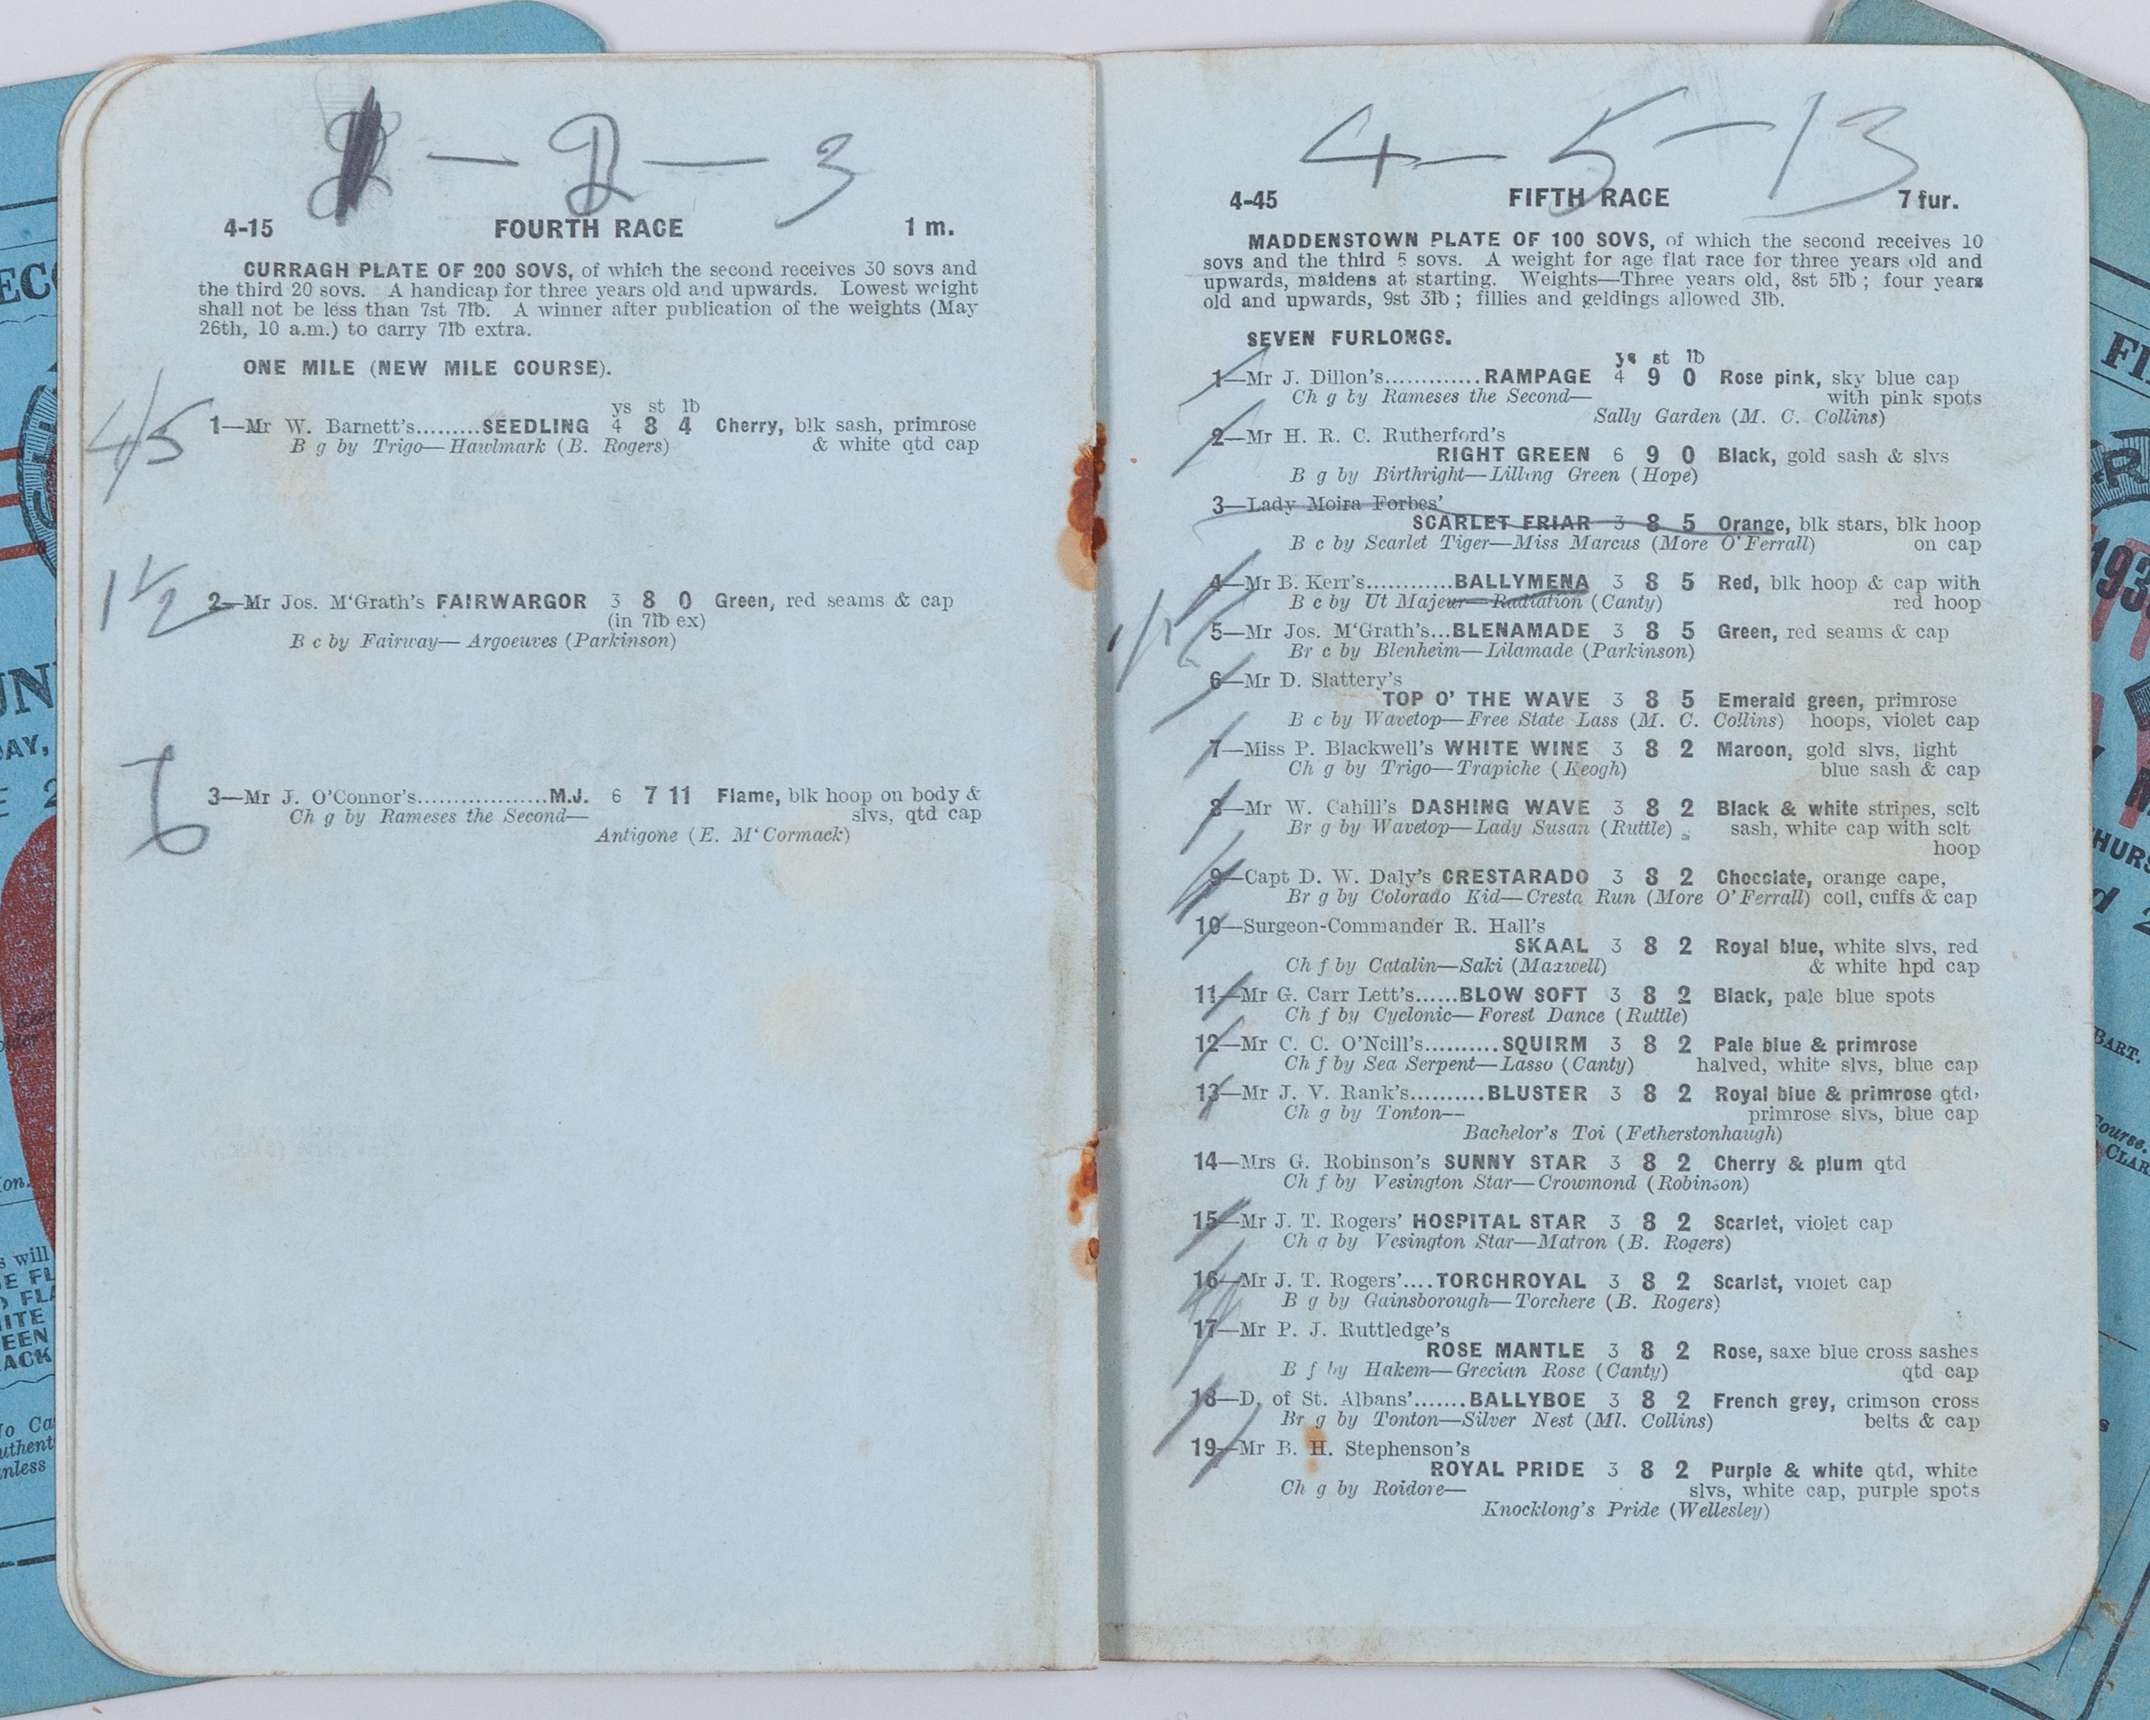 1 — 2 — 3
4-15 FOURTH RACE 1 m.
CURRAGH PLATE OF 200 SOVS, of which the second receives 30 sovs and
the third 20 sovs. A handicap for three years old and upwards. Lowest weight
shall not be less than 7st 7lb. A winner after publication of the weights (May
26th, 10 a.m.) to carry 7lb extra.
ONE MILE (NEW MILE COURSE).
ys st lb
4/5 1—Mr W. Barnett's.........SEEDLING 4 8 4 Cherry, blk sash, primrose
B g by Trigo—Hawlmark (B. Rogers) & white qtd cap
1 1/2 2—Mr Jos. M'Grath's FAIRWARGOR 3 8 0 Green, red seams & cap
(in 7lb ex)
B c by Fairway—Argoeuves (Parkinson)
6 3—Mr J. O'Connor's..................M.J. 6 7 11 Flame, blk hoop on body &
Ch g by Rameses the Second— slvs, qtd cap
Antigone (E. M'Cormack)
4 — 5 — 13
4-45 FIFTH RACE 7 fur.
MADDENSTOWN PLATE OF 100 SOVS, of which the second receives 10
sovs and the third 5 sovs. A weight for age flat race for three years old and
upwards, maidens at starting. Weights—Three years old, 8st 5lb; four years
old and upwards, 9st 3lb; fillies and geldings allowed 3lb.
SEVEN FURLONGS.
ys st lb
1—Mr J. Dillon's.............RAMPAGE 4 9 0 Rose pink, sky blue cap
Ch g by Rameses the Second— with pink spots
Sally Garden (M. C. Collins)
2—Mr H. R. C. Rutherford's
RIGHT GREEN 6 9 0 Black, gold sash & slvs
B g by Birthright—Lilling Green (Hope)
3—Lady Moira Forbes'
SCARLET FRIAR 3 8 5 Orange, blk stars, blk hoop
B c by Scarlet Tiger—Miss Marcus (More O'Ferrall) on cap
4—Mr B. Kerr's............BALLYMENA 3 8 5 Red, blk hoop & cap with
B c by Ut Majeur—Radiation (Canty) red hoop
5—Mr Jos. M'Grath's...BLENAMADE 3 8 5 Green, red seams & cap
Br c by Blenheim—Lilamade (Parkinson)
6—Mr D. Slattery's
TOP O' THE WAVE 3 8 5 Emerald green, primrose
B c by Wavetop—Free State Lass (M. C. Collins) hoops, violet cap
7—Miss P. Blackwell's WHITE WINE 3 8 2 Maroon, gold slvs, light
Ch g by Trigo—Trapiche (Keogh) blue sash & cap
8—Mr W. Cahill's DASHING WAVE 3 8 2 Black & white stripes, sclt
Br g by Wavetop—Lady Susan (Ruttle) sash, white cap with sclt
hoop
9—Capt D. W. Daly's CRESTARADO 3 8 2 Chocolate, orange cape,
Br g by Colorado Kid—Cresta Run (More O'Ferrall) coll, cuffs & cap
10—Surgeon-Commander R. Hall's
SKAAL 3 8 2 Royal blue, white slvs, red
Ch f by Catalin—Saki (Maxwell) & white hpd cap
11—Mr G. Carr Lett's......BLOW SOFT 3 8 2 Black, pale blue spots
Ch f by Cyclonic—Forest Dance (Ruttle)
12—Mr C. C. O'Neill's..........SQUIRM 3 8 2 Pale blue & primrose
Ch f by Sea Serpent—Lasso (Canty) halved, white slvs, blue cap
13—Mr J. V. Rank's..........BLUSTER 3 8 2 Royal blue & primrose qtd,
Ch g by Tonton— primrose slvs, blue cap
Bachelor's Toi (Fetherstonhaugh)
14—Mrs G. Robinson's SUNNY STAR 3 8 2 Cherry & plum qtd
Ch f by Vesington Star—Crowmond (Robinson)
15—Mr J. T. Rogers' HOSPITAL STAR 3 8 2 Scarlet, violet cap
Ch g by Vesington Star—Matron (B. Rogers)
16—Mr J. T. Rogers'....TORCHROYAL 3 8 2 Scarlet, violet cap
B g by Gainsborough—Torchere (B. Rogers)
17—Mr P. J. Ruttledge's
ROSE MANTLE 3 8 2 Rose, saxe blue cross sashes
B f by Hakem—Grecian Rose (Canty) qtd cap
18—D. of St. Albans'.......BALLYBOE 3 8 2 French grey, crimson cross
Br g by Tonton—Silver Nest (Ml. Collins) belts & cap
19—Mr B. H. Stephenson's
ROYAL PRIDE 3 8 2 Purple & white qtd, white
Ch g by Roidore— slvs, white cap, purple spots
Knocklong's Pride (Wellesley)